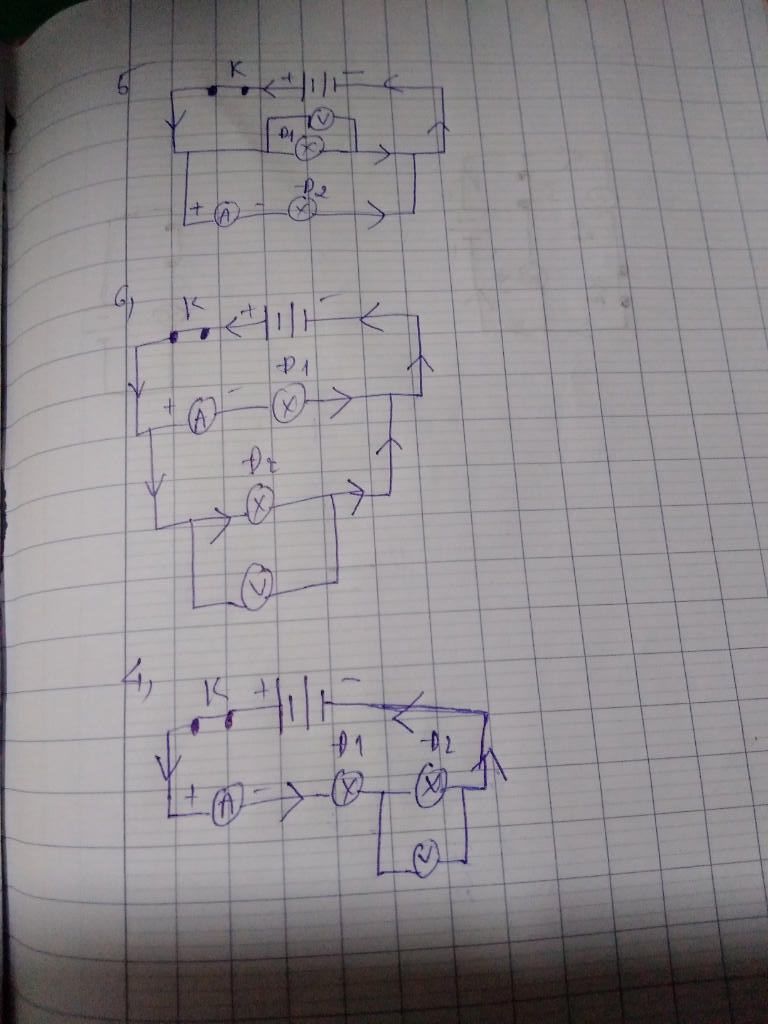 5
K
+ -
V
Đ1
X
Đ2
+ A - X
6,
K + -
Đ1
+ A - X
Đ2
X
V
4,
K + -
Đ1 Đ2
+ A - X X
V